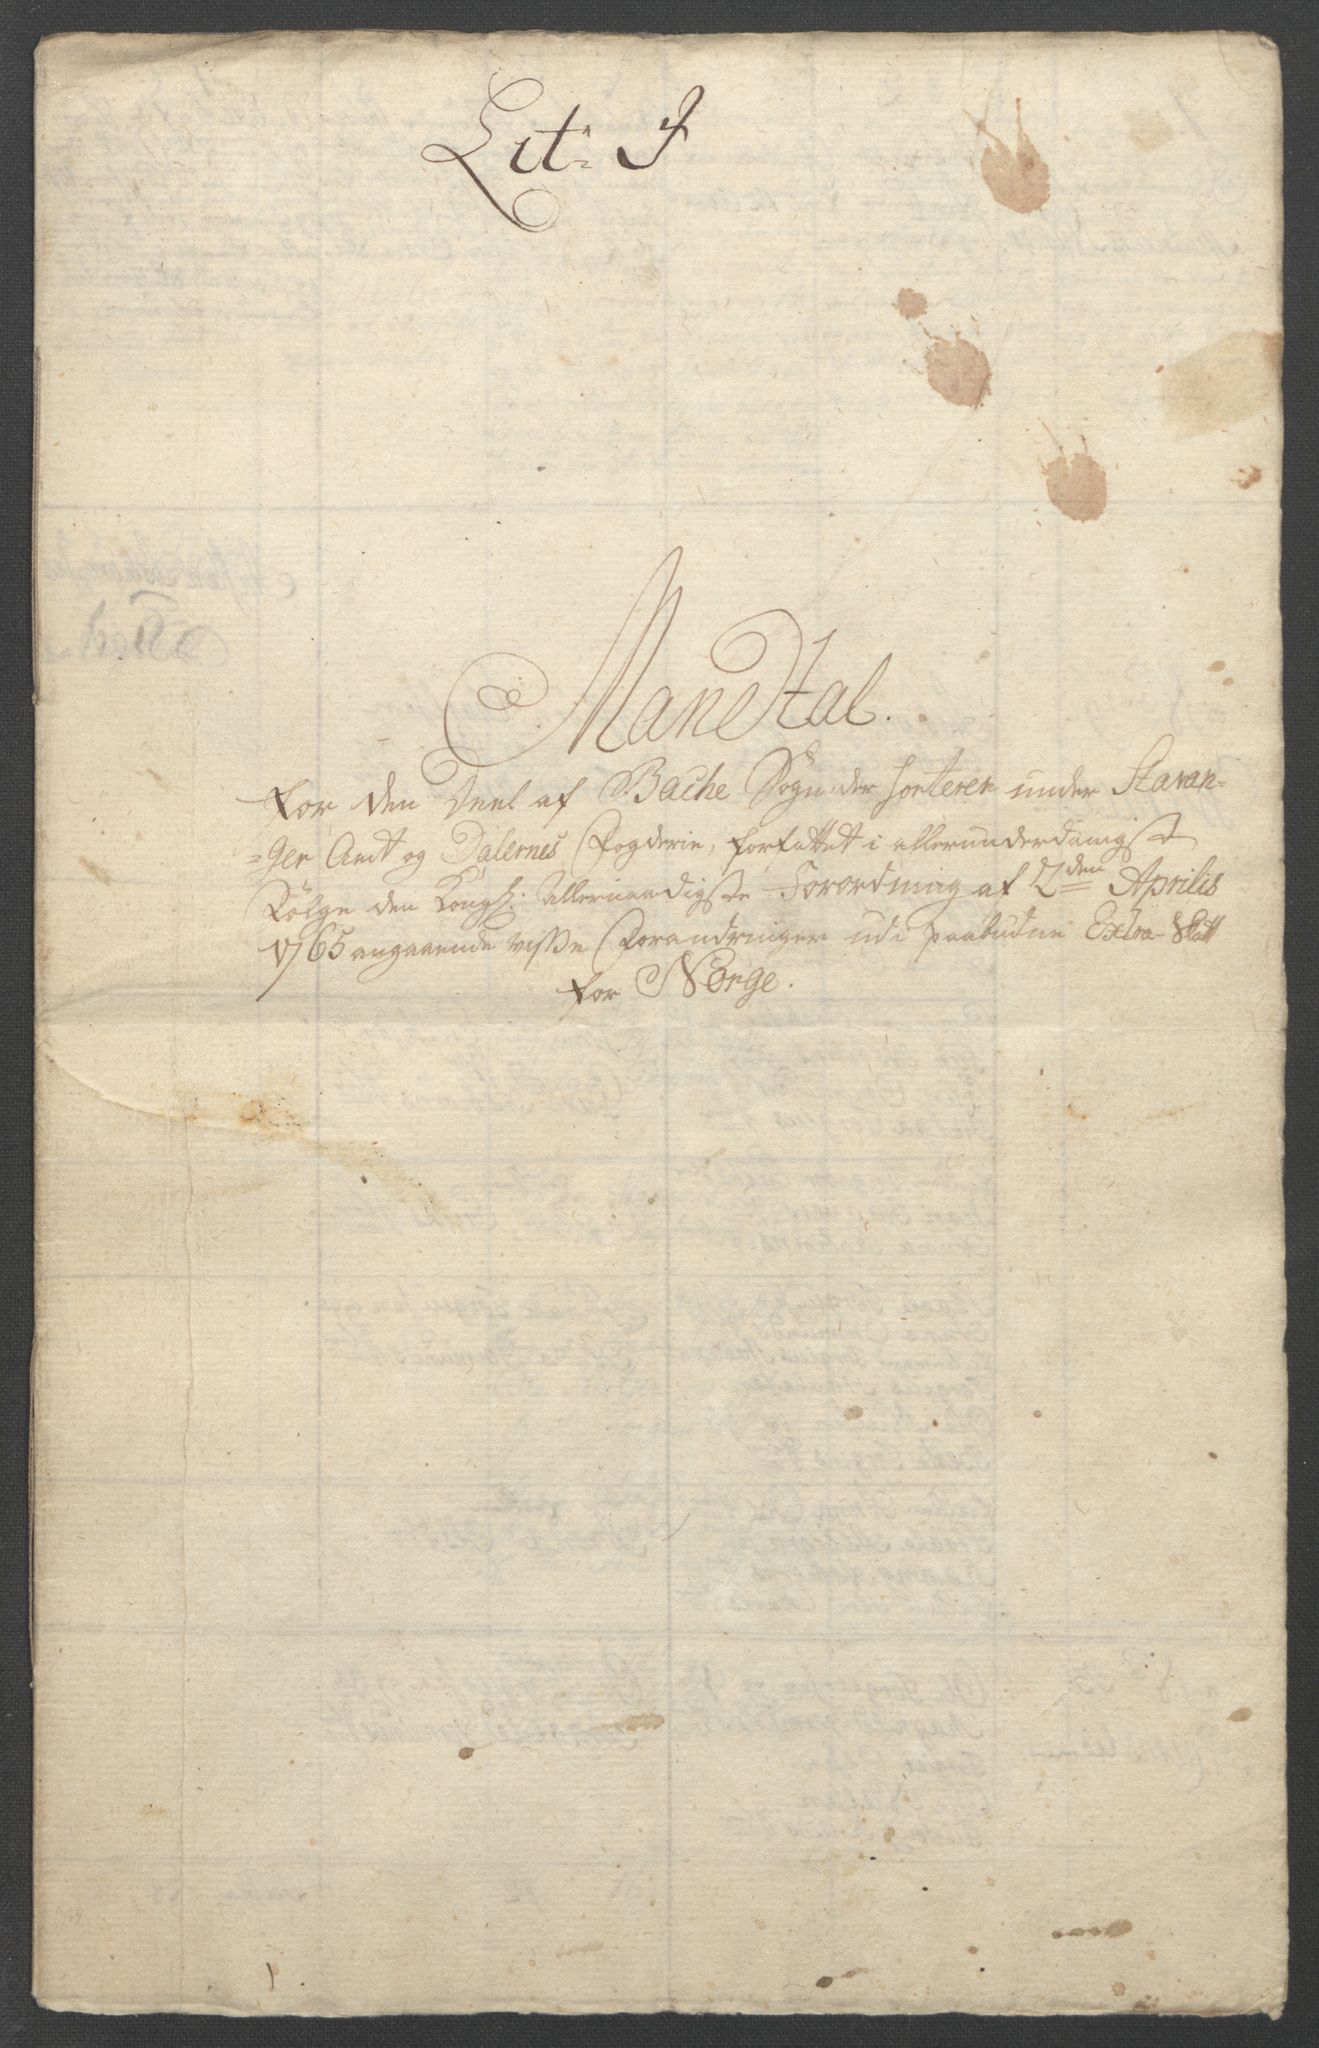 Lit: I
Mandtal.
for den Deel af Bache Sogn der sorterer under Stavan-
=ger Amt og Dalernes Fogderie, forfattet i allerunderdanigst
Følge den Kongl: Allernaadigste Forordning af 2den Aprilis
1765 angaaende visse Forandringer udi paabudne Extra-Skatt
for Norge.